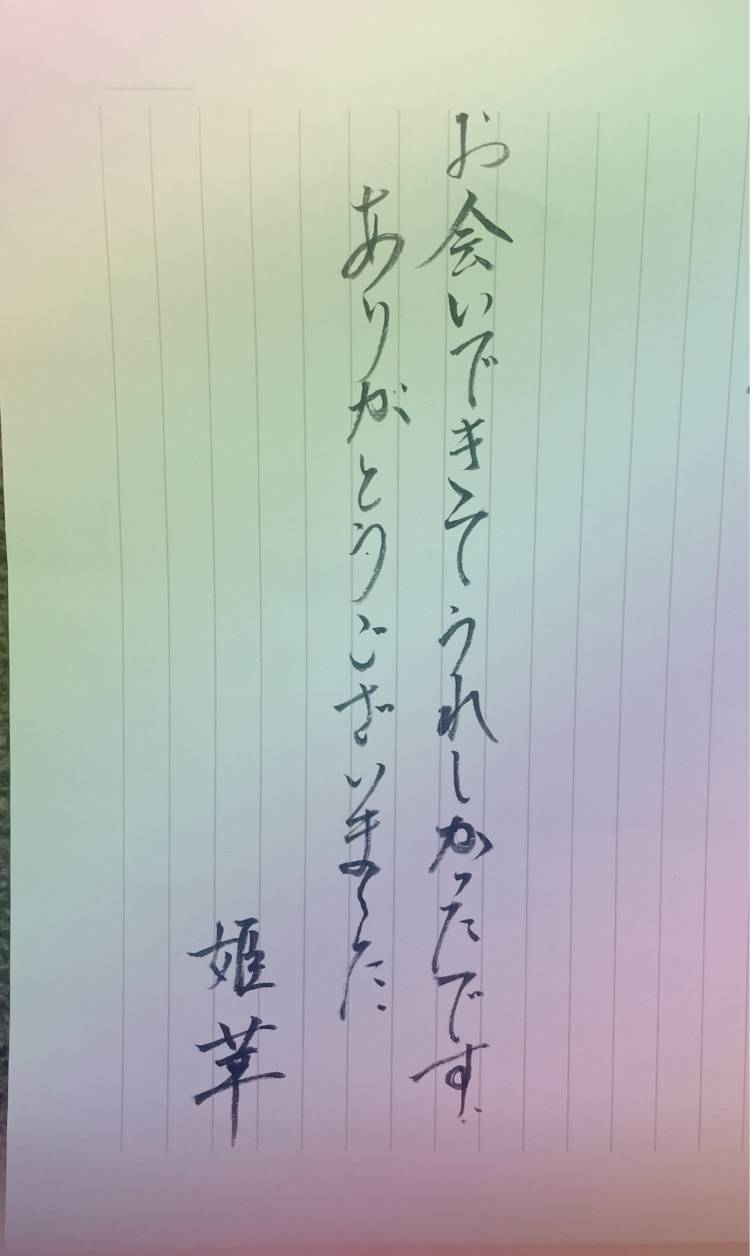 お会いできてうれしかったです
ありがとうございました
姫草